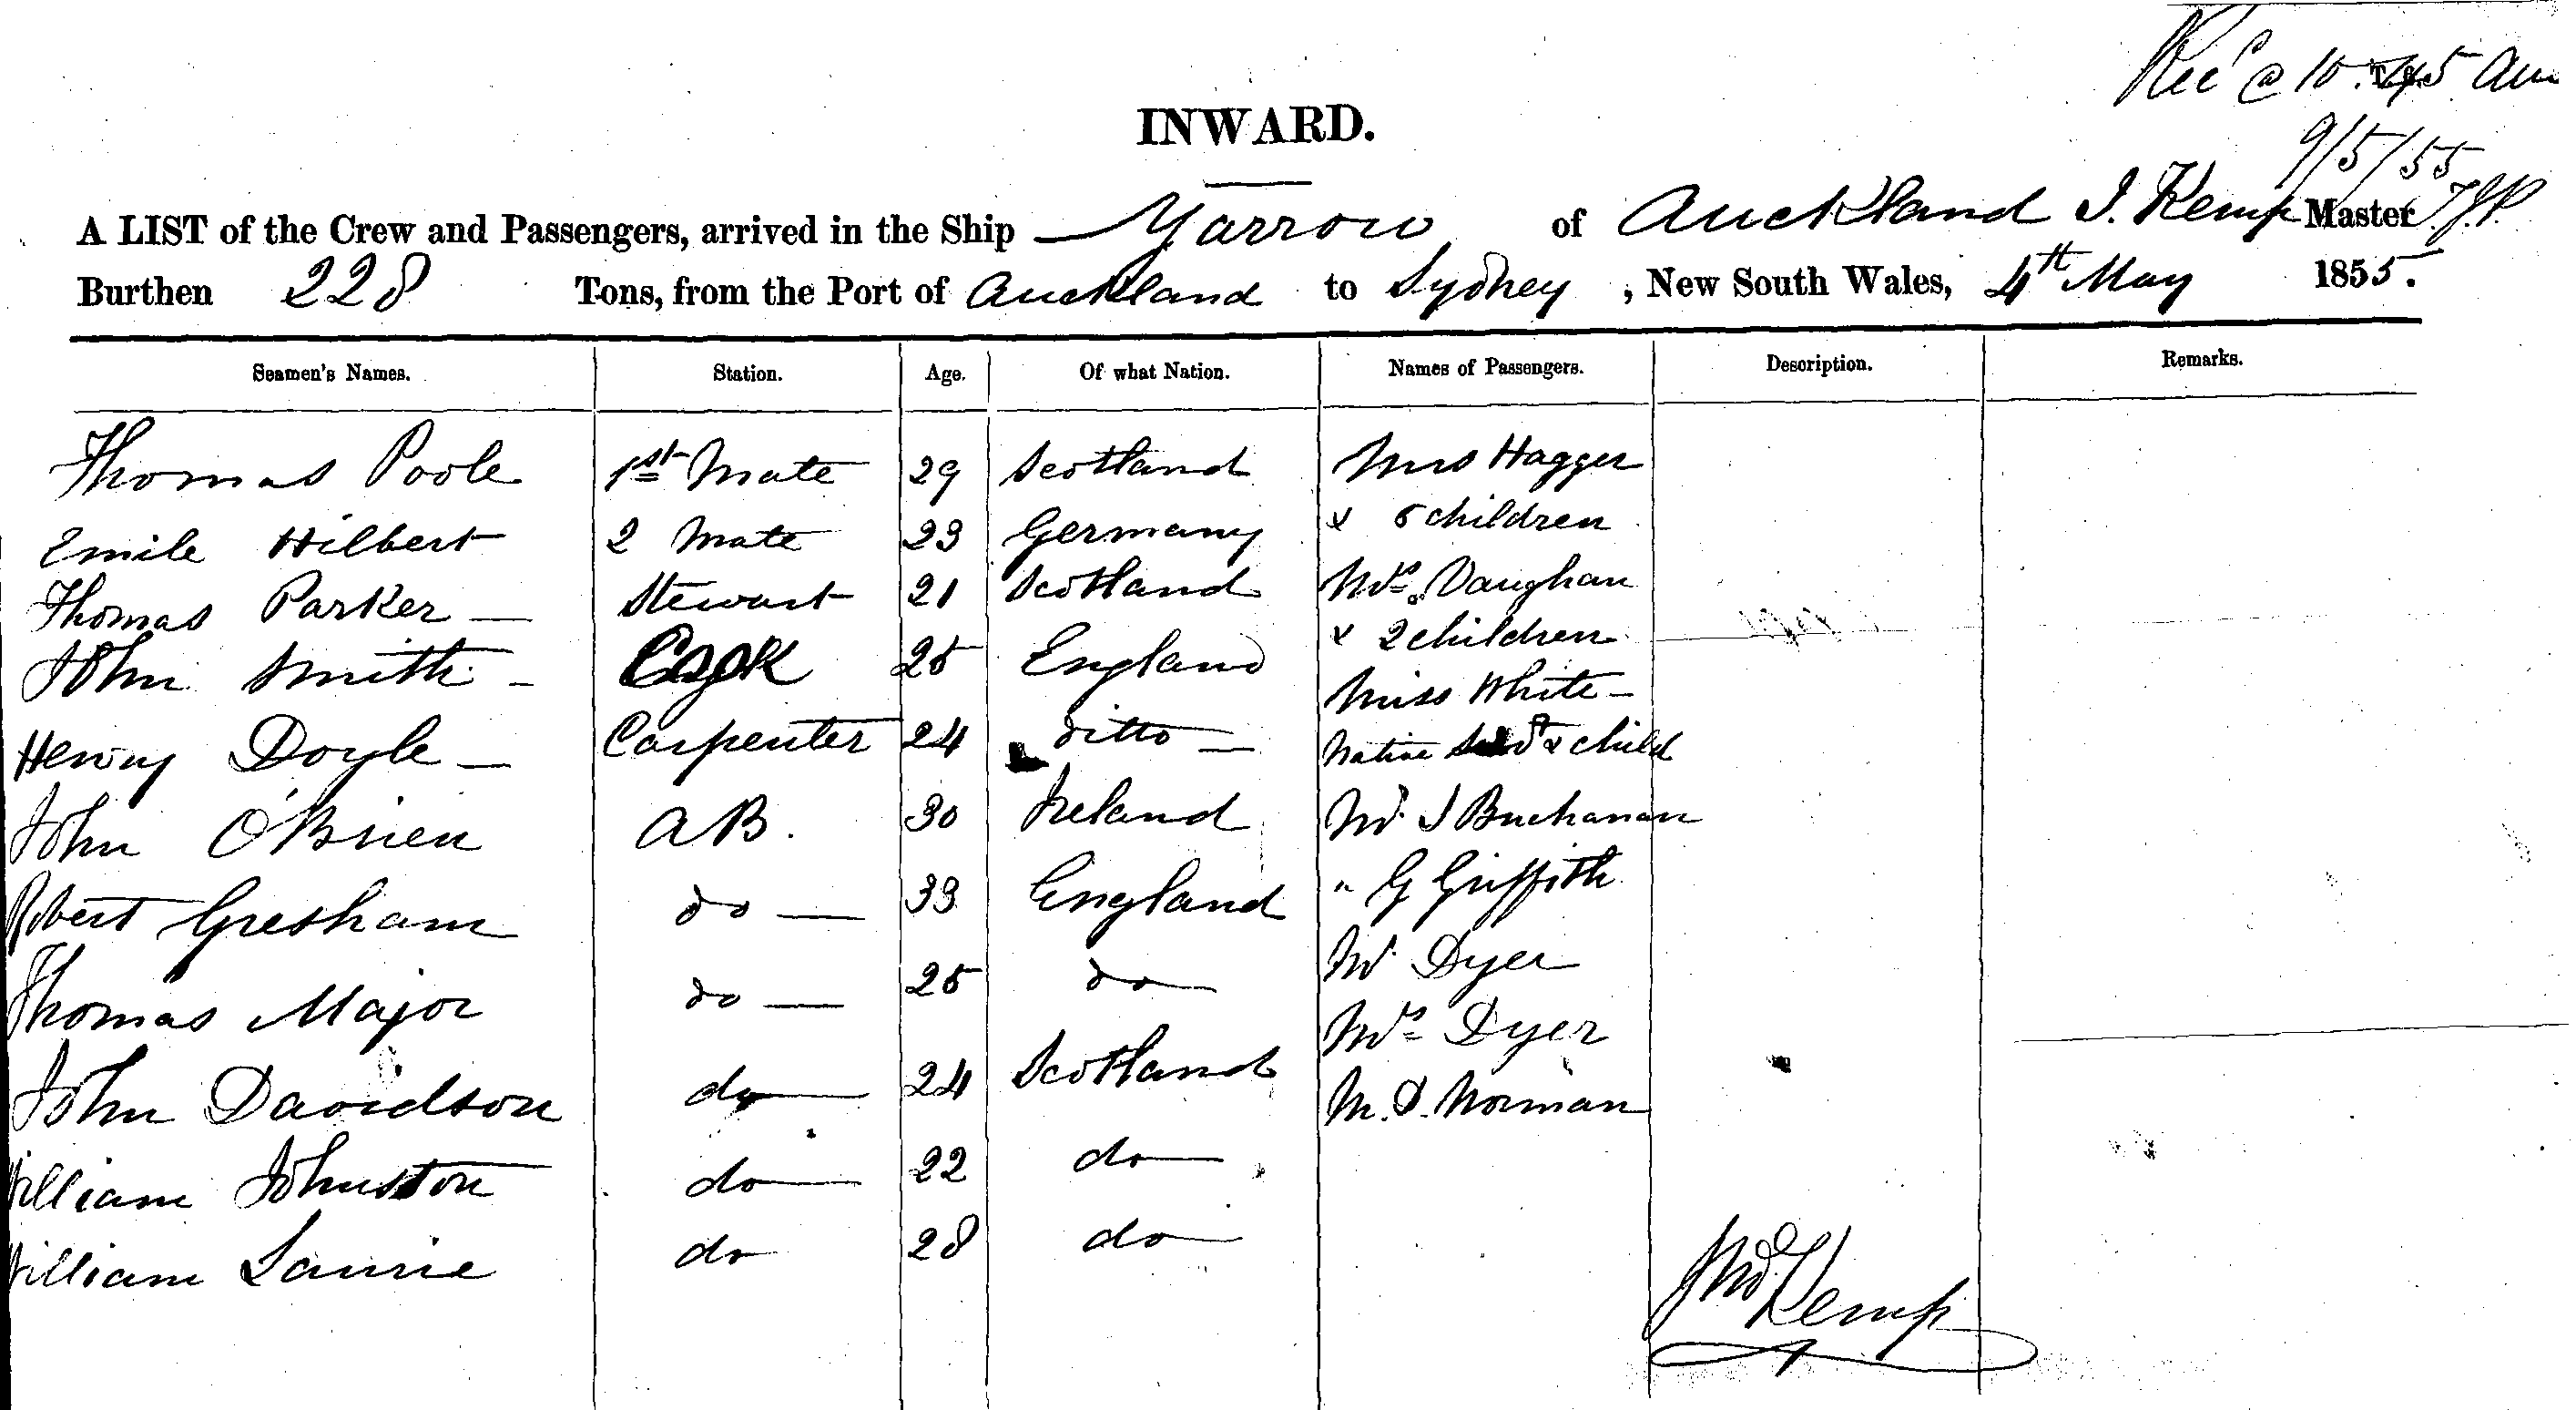 Rec'd @ 10.45 am
9/5/55
INWARD.
A LIST of the Crew and Passengers, arrived in the Ship Yarrow of Auckland J. Kemp Master
Burthen 228 Tons, from the Port of Auckland to Sydney, New South Wales, 4th May 1855.
Seamen's Names. Station. Age. Of what Nation. Names of Passengers. Description. Remarks.
Thomas Poole 1st Mate 29 Scotland Mrs Hagger
Emile Hilbert 2 Mate 23 Germany & 5 children
Thomas Parker — Stewart 21 Scotland Mrs. Vaughan
& 2 children
John Smith — Cook 25 England Miss White —
Henry Doyle — Carpenter 24 ditto — Native & child
John O'Brien A B. 30 Ireland Mr J Buchanan
Robert Gresham do — 33 England " G Griffith
Thomas Major do — 25 do — Mr Dyer
Mrs Dyer
John Davidson do — 24 Scotland M. D. Norman
William Johnston do — 22 do —
William Laurie do 28 do —
Jno Kemp